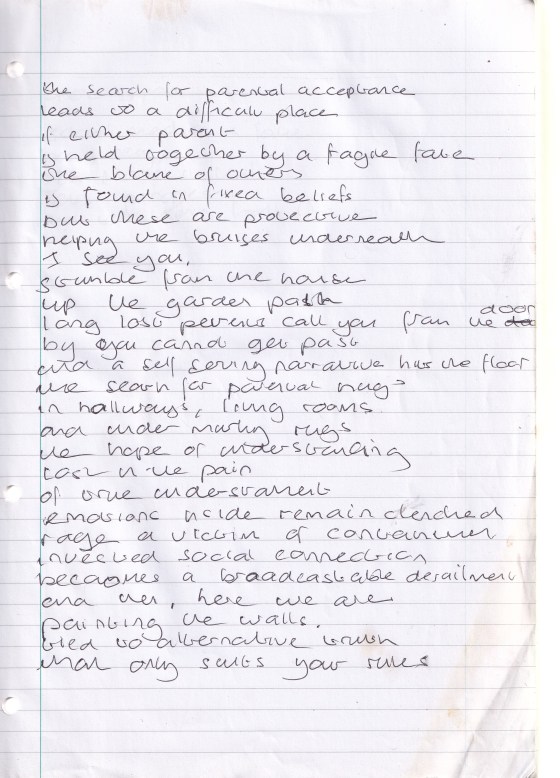 the search for parental acceptance
leads to a difficult place
if either parent
is held together by a fragile fate
the blame of others
is found in fixed beliefs
but these are protective
helping the bruises underneath
I see you,
stumble from the house
up the garden path
long lost parents call you from the door
by you cannot get past
and a self serving narrative has the floor
the search for parental hugs
in hallways, living rooms
and under murky rugs
the hope of understanding
lost in the pain
of true understament
emotions inside remain clenched
rage a victim of containment
invested social connection
becomes a broadcastable derailment
and yet, here we are
painting the walls.
tied to alternative truth
that only suits your rules